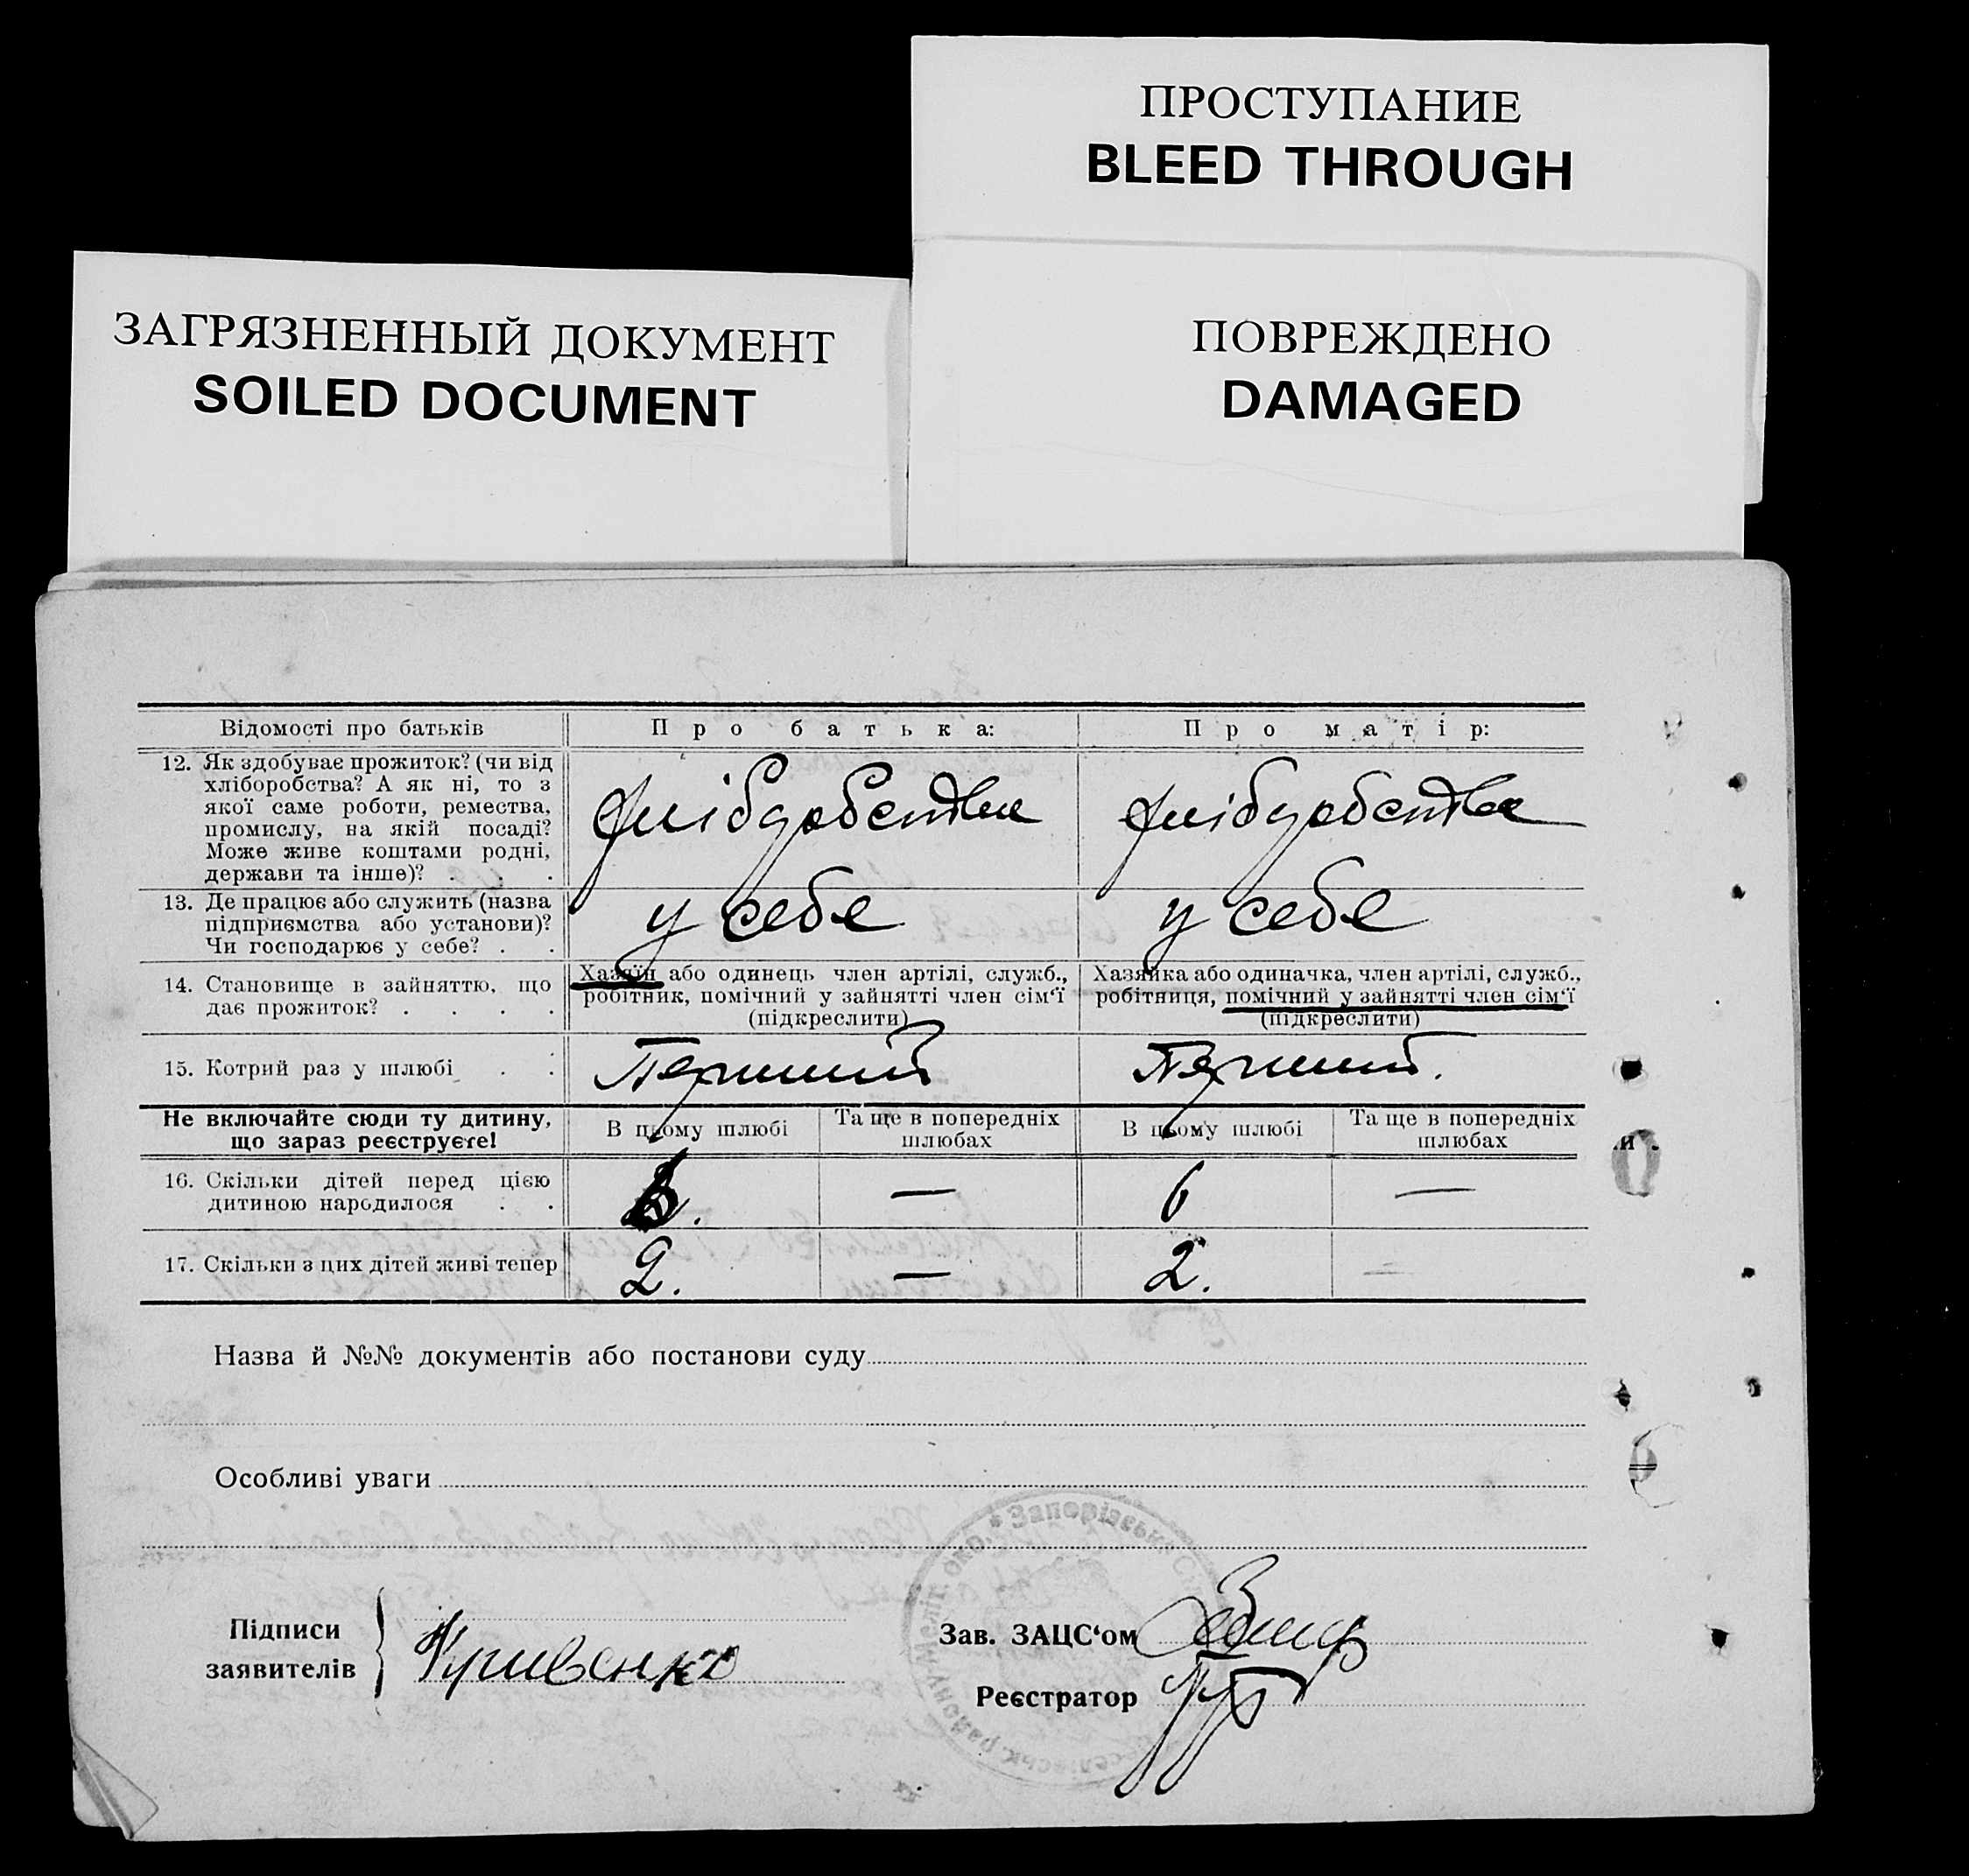 ПРОСТУПАНИЕ
BLEED THROUGH
ЗАГРЯЗНЕННЫЙ ДОКУМЕНТ
SOILED DOCUMENT
ПОВРЕЖДЕНО
DAMAGED
Відомості про батьків
Про батька:
Про матір:
12. Як здобуває прожиток? (чи від
хліборобства? А як ні, то з
якої саме роботи, ремества,
промислу, на якій посаді?
Може живе коштами родні,
держави та інше)? . . .
у себе
у себе
13. Де працює або служить (назва
підприємства або установи)?
Чи господарює у себе? . .
14. Становище в зайняттю, що
дає прожиток? . . . .
Хазяїн або одинець член артілі, служб.,
робітник, помічний у зайнятті член сім‘ї
(підкреслити)
Хазяйка або одиначка, член артілі, служб.,
робітниця, помічний у зайнятті член сім‘ї
(підкреслити)
15. Котрий раз у шлюбі . .
Перший
Перший.
Не включайте сюди ту дитину,
що зараз реєструєте!
В цьому шлюбі
Та ще в попередніх
шлюбах
В цьому шлюбі
Та ще в попередніх
шлюбах
16. Скільки дітей перед цією
дитиною народилося . .
—
6
—
17. Скільки з цих дітей живі тепер
2.
—
2.
—
Назва й №№ документів або постанови суду
Особливі уваги
Підписи
заявителів
Кривенко
Зав. ЗАЦС‘ом
Реєстратор